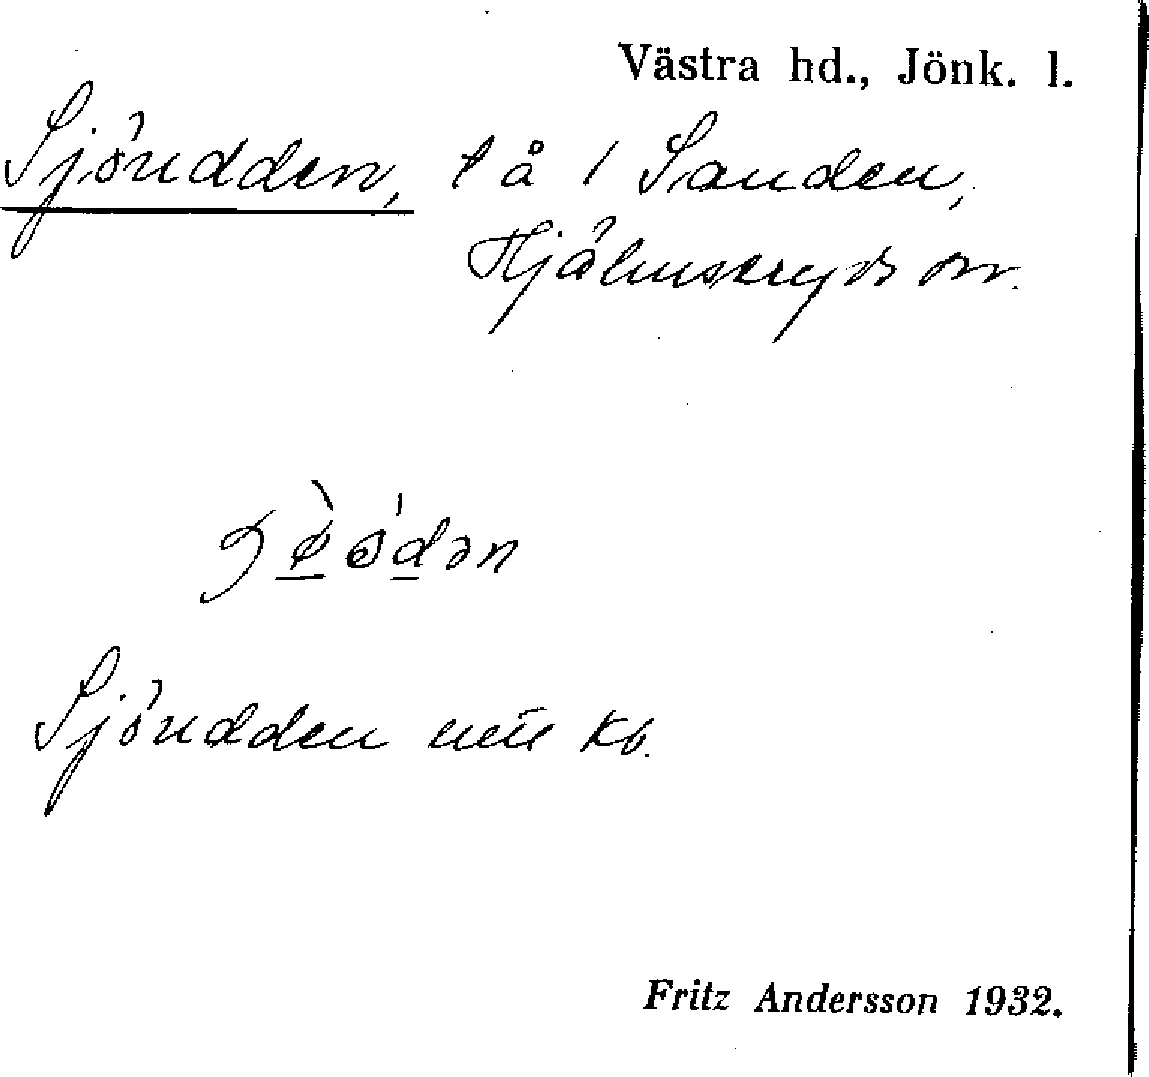 Västra hd., Jönk. l.
Sjöudden, t å 1 Sanden,
Hjälmseryds sn.
Sjöudden kb.
Fritz Andersson 1932.